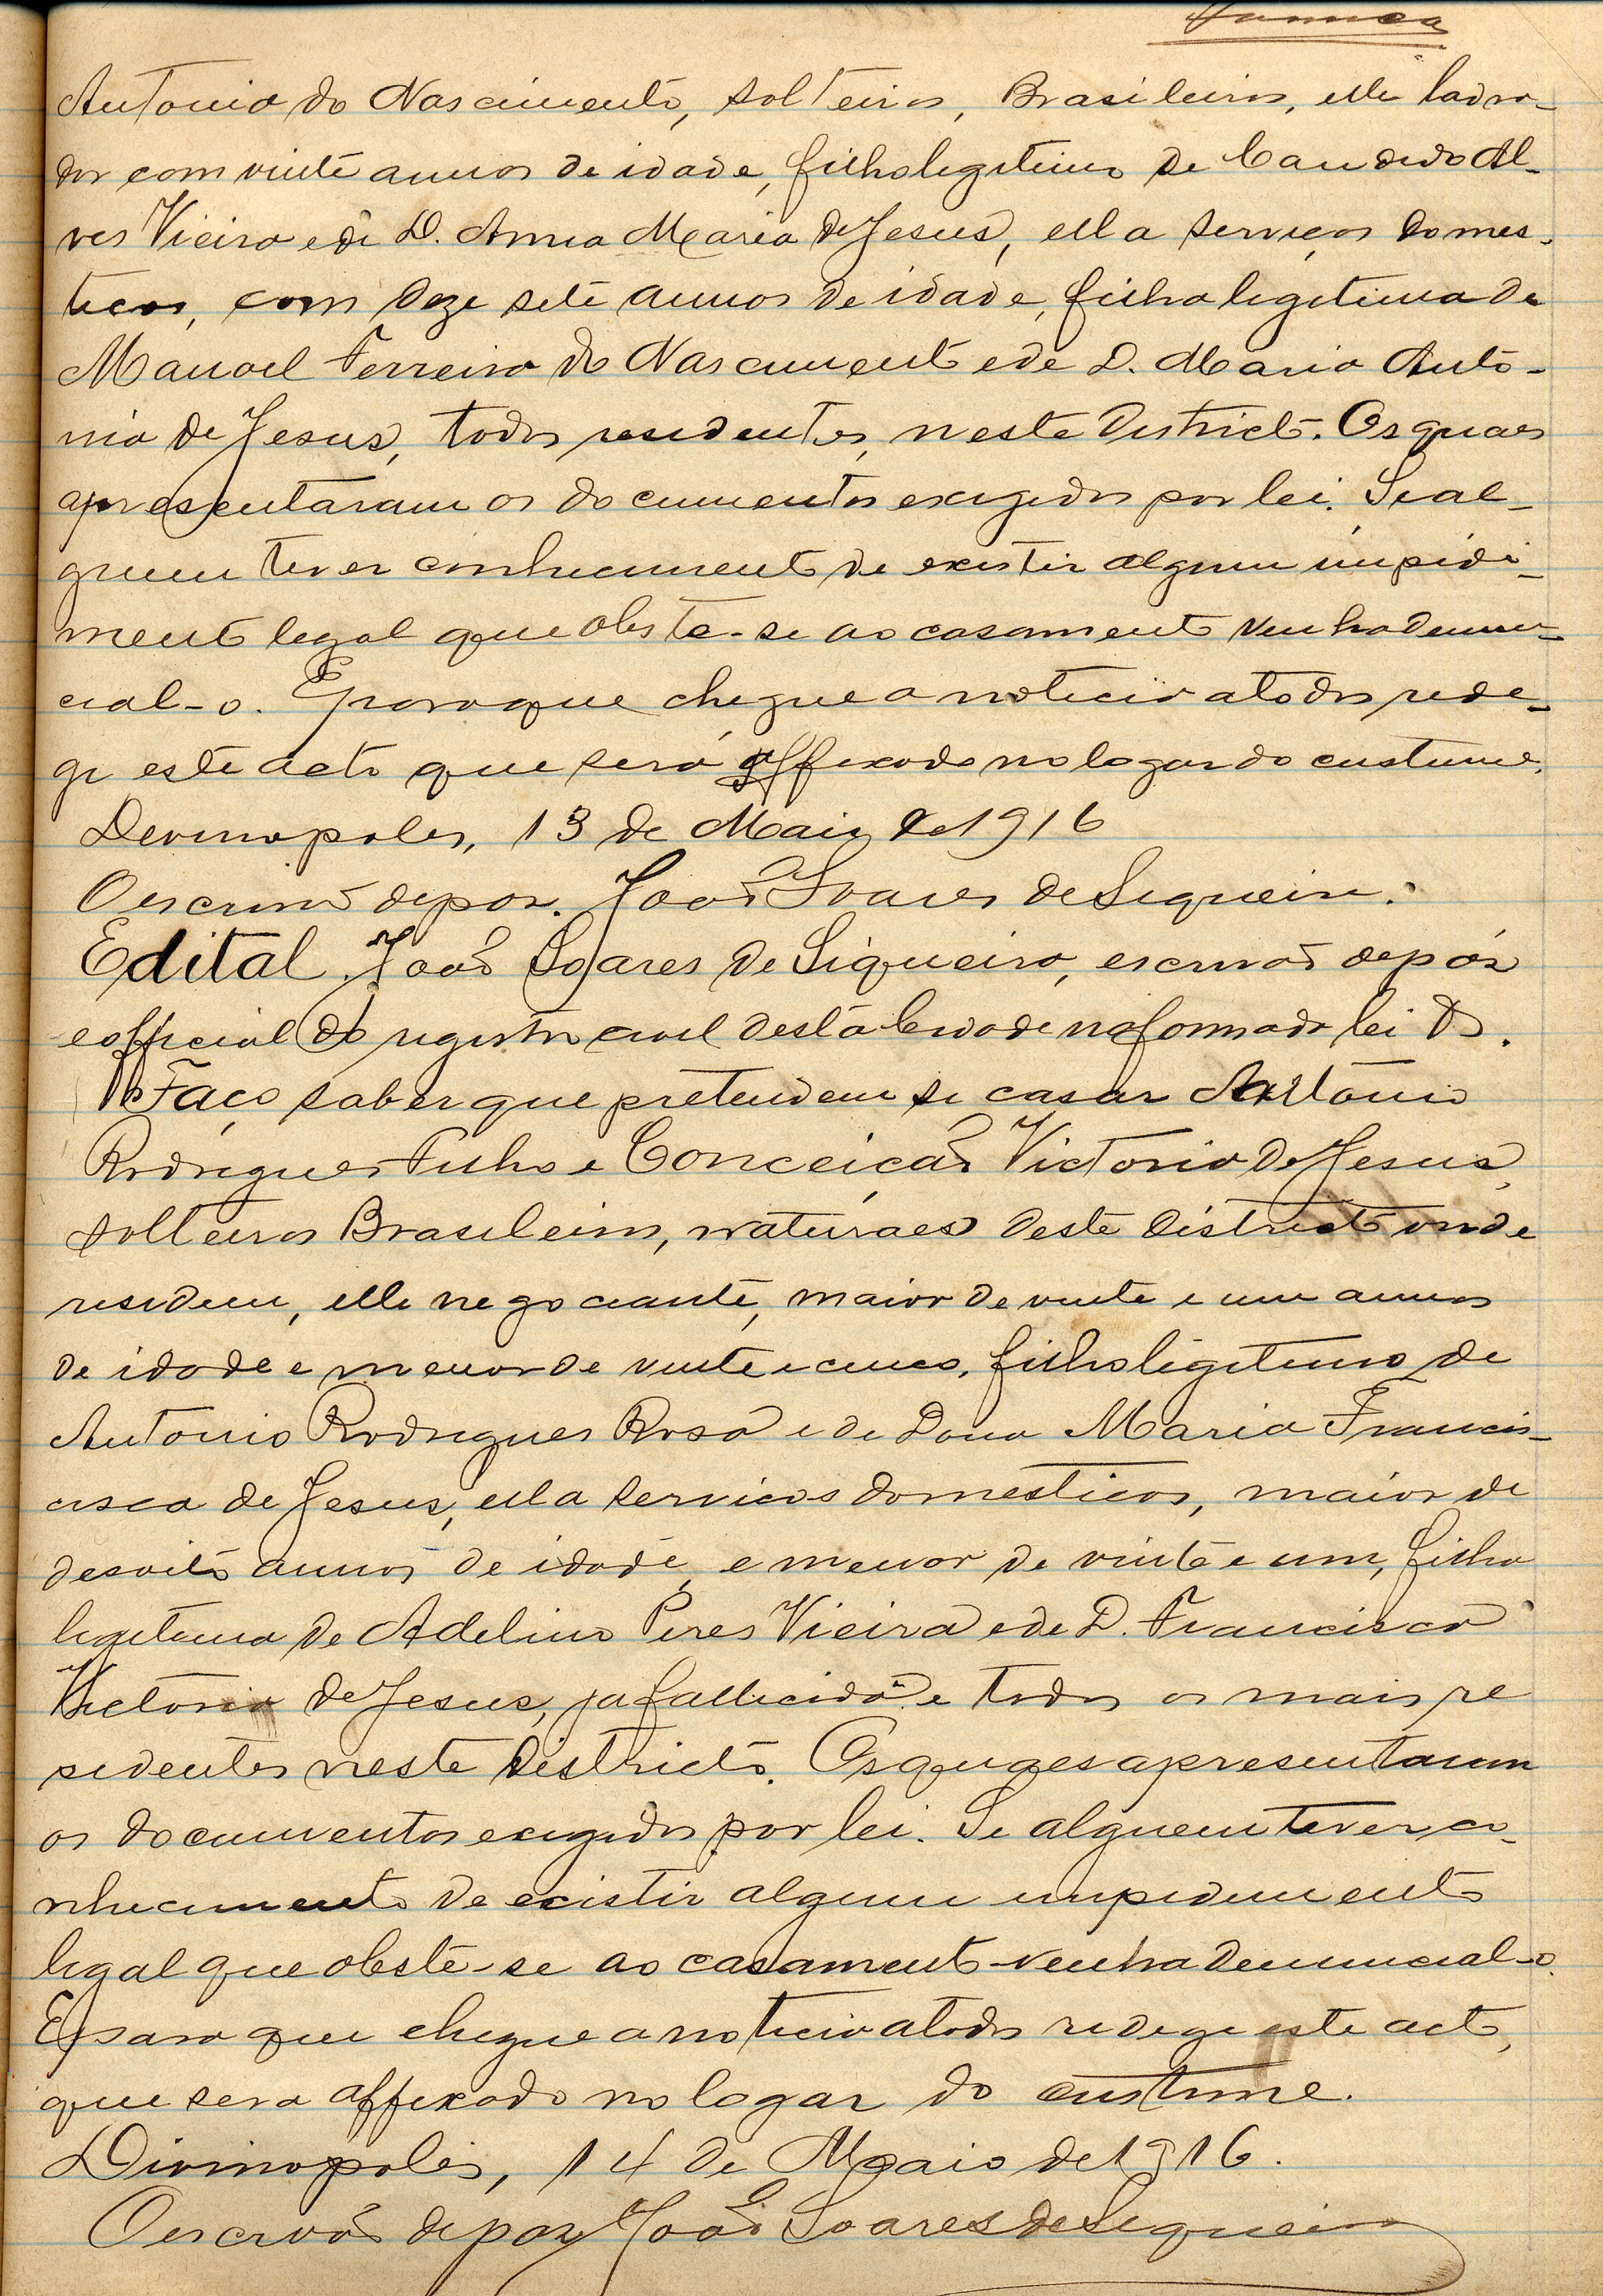 Antonio do Nascimento, solteiros, Brasileiros, elle lavra-
dor com vinte annos de idade, filho legitimo de Candido Al-
ves Vieira e de D. Anna Maria de Jesus, ella serviços domes-
ticos, com deze sete annos de idade, filha legitima de
Manoel Ferreira do Nascimento e de D. Maria Anto-
nia de Jesus, todos residentes, neste Districto. Os quaes
apresentaram os documentos exigidos por lei. Se al-
guem tiver conhecimento de existir algum impidi-
mento legal que obste-se ao casamento venha denun-
cial-o. E para que chegue a noticia a todos rede-
gi este acto que será affixado no logar do custume.
Devinopoles, 13 de Maio de 1916
O escrivão de paz. João Soares de Siqueira.
Edital. João Soares de Siqueira, escrivão de paz
e official do registro civil desta Cidade na forma da lei &.
Faço saber que pretendem se casar Antonio
Rodrigues Filho e Conceição Victoria de Jesus,
solteiros Brasileiros, naturaes deste Districto onde
residem, elle negociante, maior de vinte e um annos
de idade e menor de vinte e cinco, filho legitimo de
Antonio Rodrigues Rosa e de Dona Maria Francis-
cisca de Jesus, ella serviços domesticos, maior de
desoito annos de idade, e menor de vinte e um, filha
legitima de Adelino Peres Vieira e de D. Francisca
Victoria de Jesus, ja fallecida e todos os mais re
sidentes neste Districto. Os quaes apresentaram
os documentos exigidos por lei. Se alguem tever co-
nhecimento de existir algum impedimento
legal que obste-se ao casamento venha denuncial-o.
E para que chegue a noticia a todos redege este acto,
que sera affixado no logar do custume.
Divinopolis, 14 de Maio de 1916.
O escrivão de paz João Soares de Siqueira